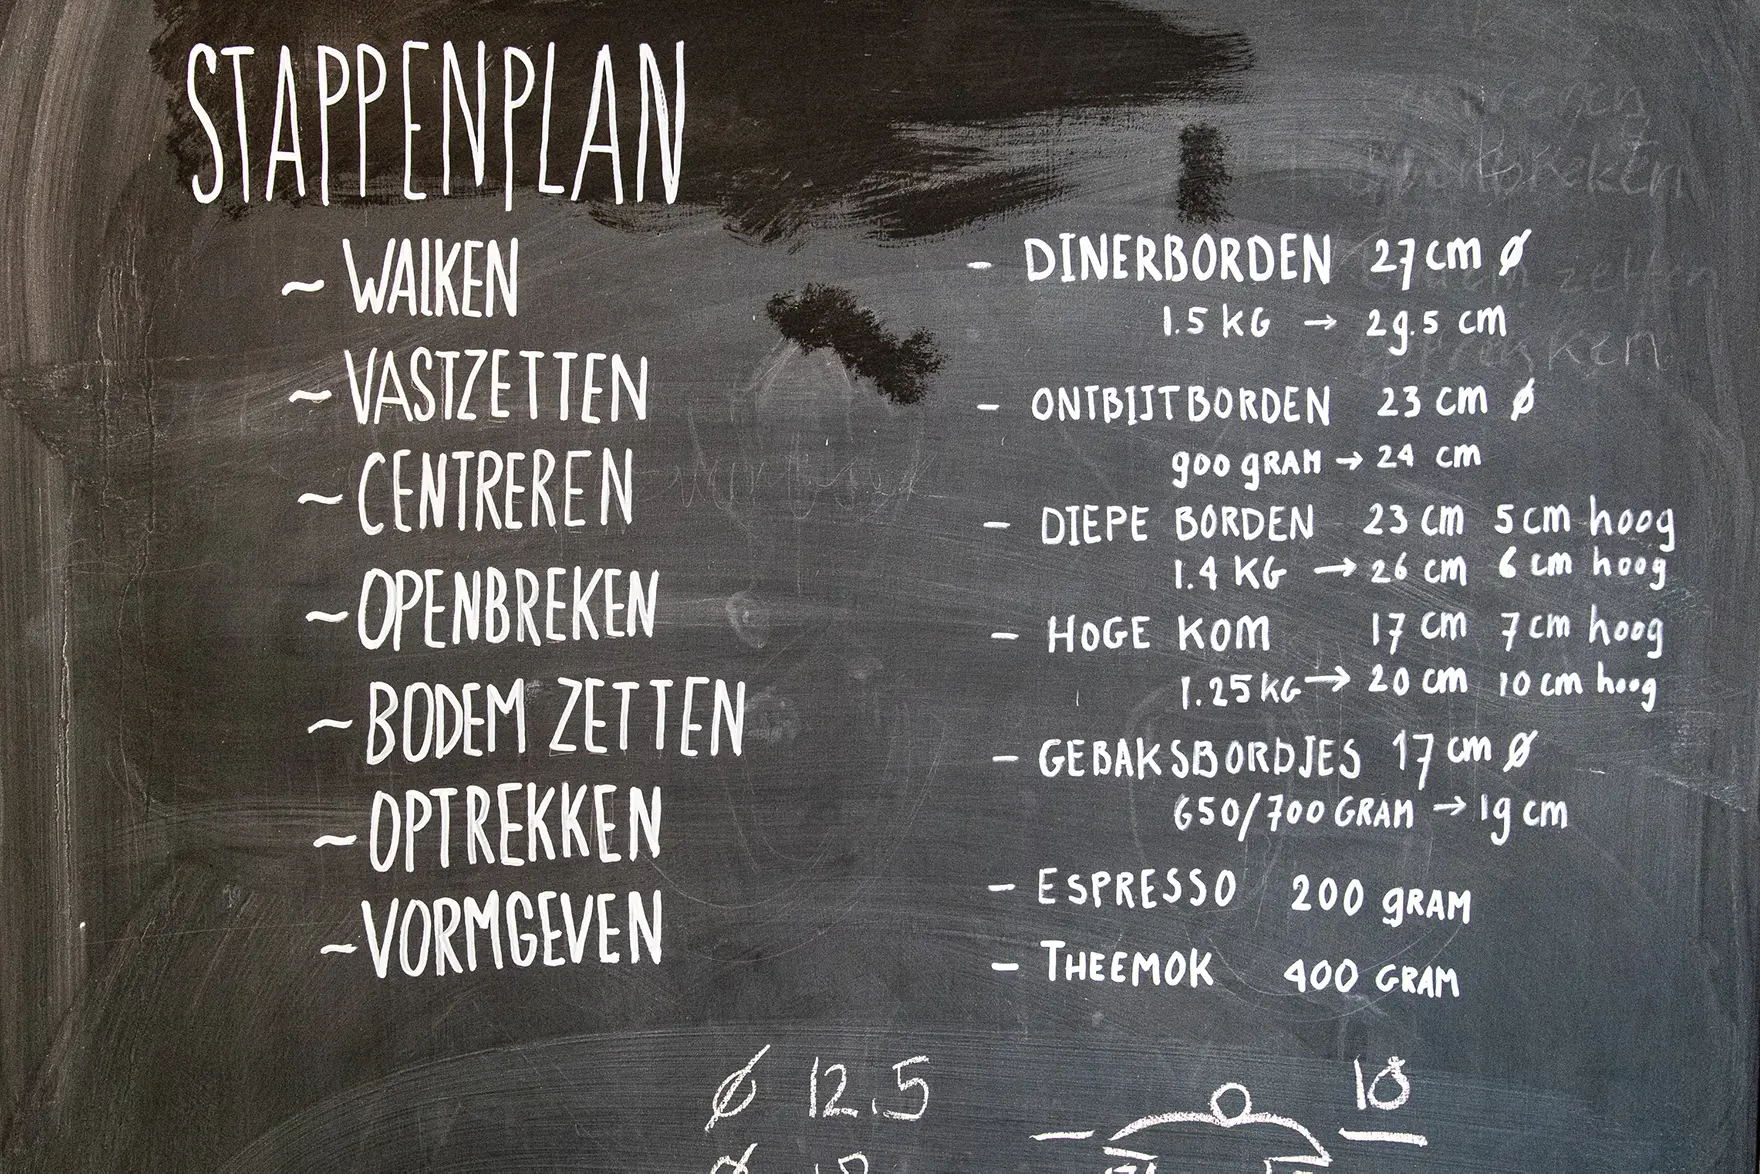 STAPPENPLAN
~ WALKEN
~ VASTZETTEN
~ CENTREREN
~ OPENBREKEN
~ BODEM ZETTEN
~ OPTREKKEN
~ VORMGEVEN
- DINERBORDEN 27 cm Ø
1.5 KG → 29.5 cm
- ONTBIJTBORDEN 23 cm Ø
900 GRAM → 24 cm
- DIEPE BORDEN 23 cm 5 cm hoog
1.4 KG → 26 cm 6 cm hoog
- HOGE KOM 17 cm 7 cm hoog
1.25 KG → 20 cm 10 cm hoog
- GEBAKSBORDJES 17 cm Ø
650/700 GRAM → 19 cm
- ESPRESSO 200 GRAM
- THEEMOK 400 GRAM
Ø 12.5